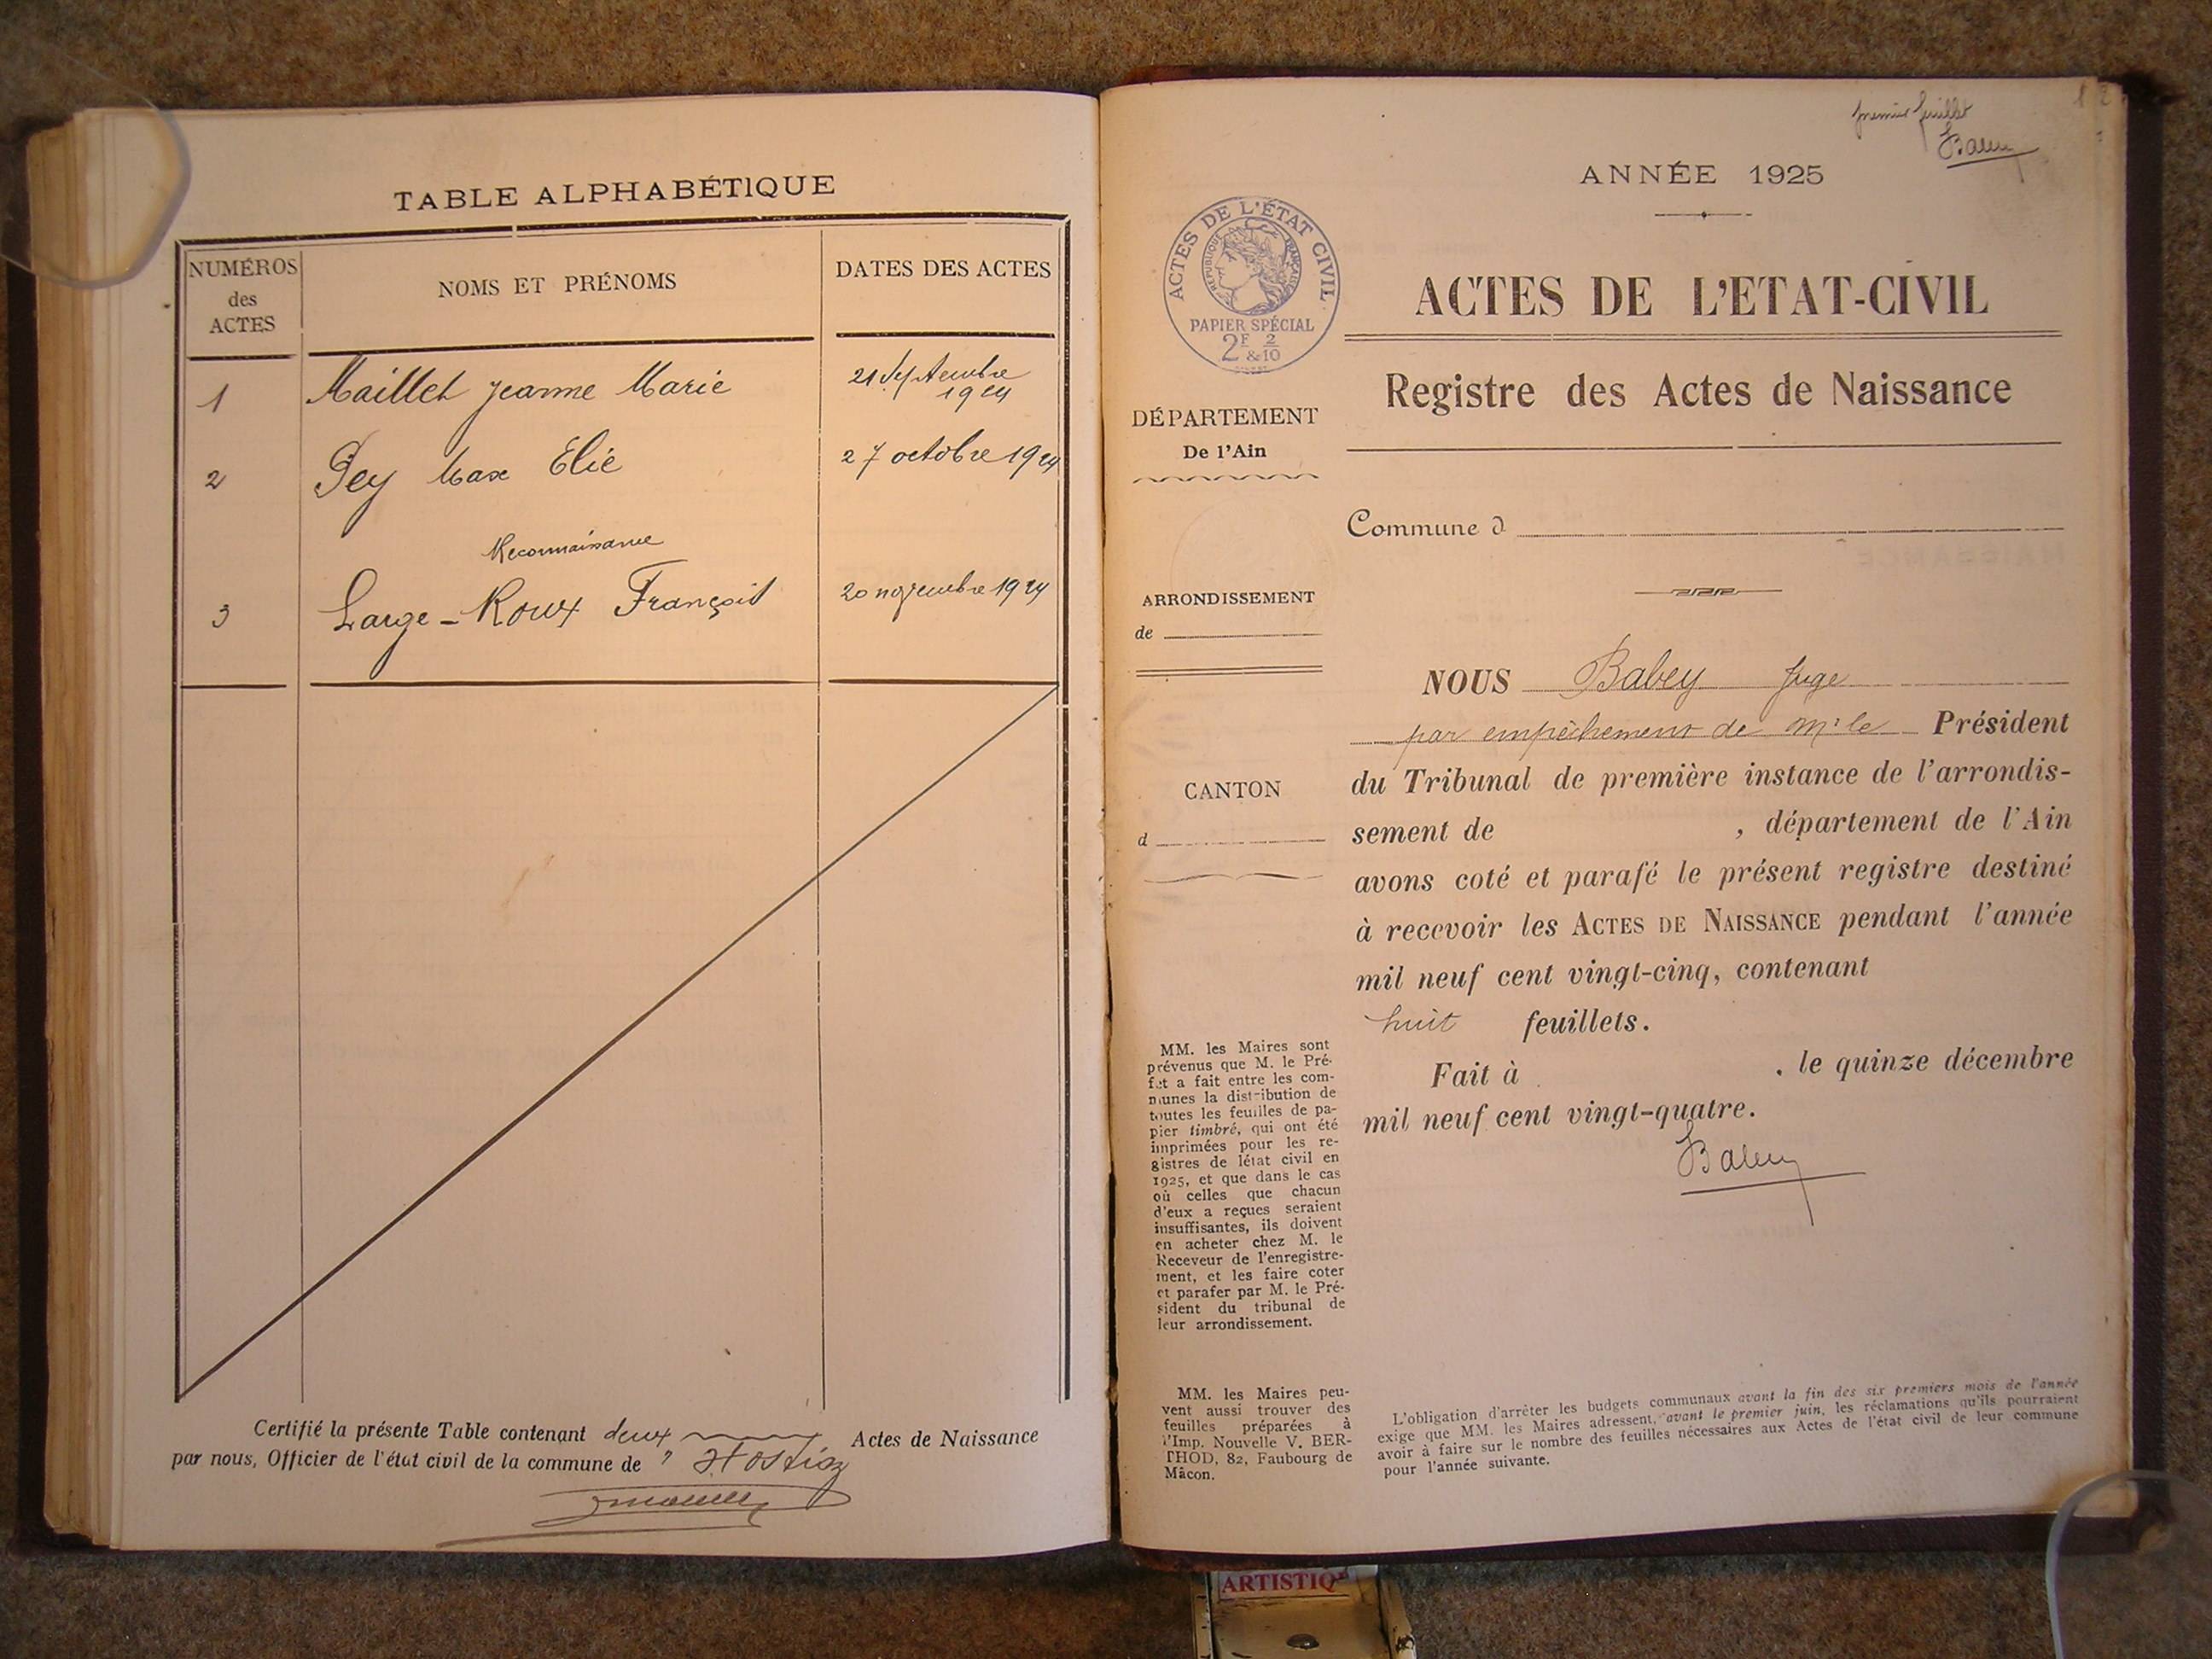 TABLE ALPHABÉTIQUE
NUMÉROS
des
ACTES
NOMS ET PRÉNOMS
DATES DES ACTES
1 Maillet Jeanne Marie 21 Septembre
1924
2 Pey Max Elie 27 octobre 1924
Reconnaissance
3 Large-Roux François 20 novembre 1924
Certifié la présente Table contenant deux Actes de Naissance
par nous, Officier de l'état civil de la commune de Hostiaz
premier feuillet
Babey
ANNÉE 1925
ACTES DE L'ÉTAT CIVIL
RÉPUBLIQUE FRANÇAISE
PAPIER SPÉCIAL
2F 2
&10
ACTES DE L'ETAT-CIVIL
Registre des Actes de Naissance
DÉPARTEMENT
De l'Ain
Commune d
ARRONDISSEMENT
de
CANTON
d
NOUS Babey Juge
par empêchement de Mr le Président
du Tribunal de première instance de l'arrondis-
sement de , département de l'Ain
avons coté et parafé le présent registre destiné
à recevoir les ACTES DE NAISSANCE pendant l'année
mil neuf cent vingt-cinq, contenant
huit feuillets.
Fait à , le quinze décembre
mil neuf cent vingt-quatre.
Babey
MM. les Maires sont
prévenus que M. le Pré-
fet a fait entre les com-
munes la distribution de
toutes les feuilles de pa-
pier timbré, qui ont été
imprimées pour les re-
gistres de létat civil en
1925, et que dans le cas
où celles que chacun
d'eux a reçues seraient
insuffisantes, ils doivent
en acheter chez M. le
Receveur de l'enregistre-
ment, et les faire coter
et parafer par M. le Pré-
sident du tribunal de
leur arrondissement.
MM. les Maires peu-
vent aussi trouver des
feuilles préparées à
l'Imp. Nouvelle V. BER-
THOD, 82, Faubourg de
Mâcon.
L'obligation d'arrêter les budgets communaux avant la fin des six premiers mois de l'année
exige que MM. les Maires adressent, avant le premier juin, les réclamations qu'ils pourraient
avoir à faire sur le nombre des feuilles nécessaires aux Actes de l'état civil de leur commune
pour l'année suivante.
ARTISTIQ